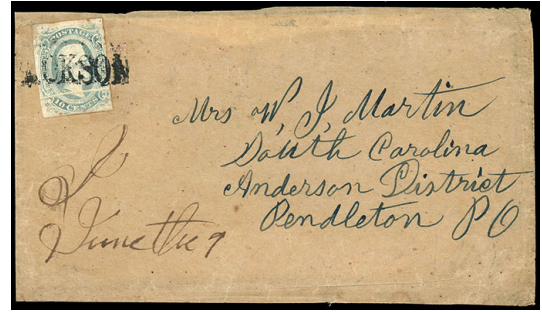 POSTAGE
TEN CENTS
Mrs W, J, Martin
South Carolina
Anderson District
Pendleton PO
June the 9